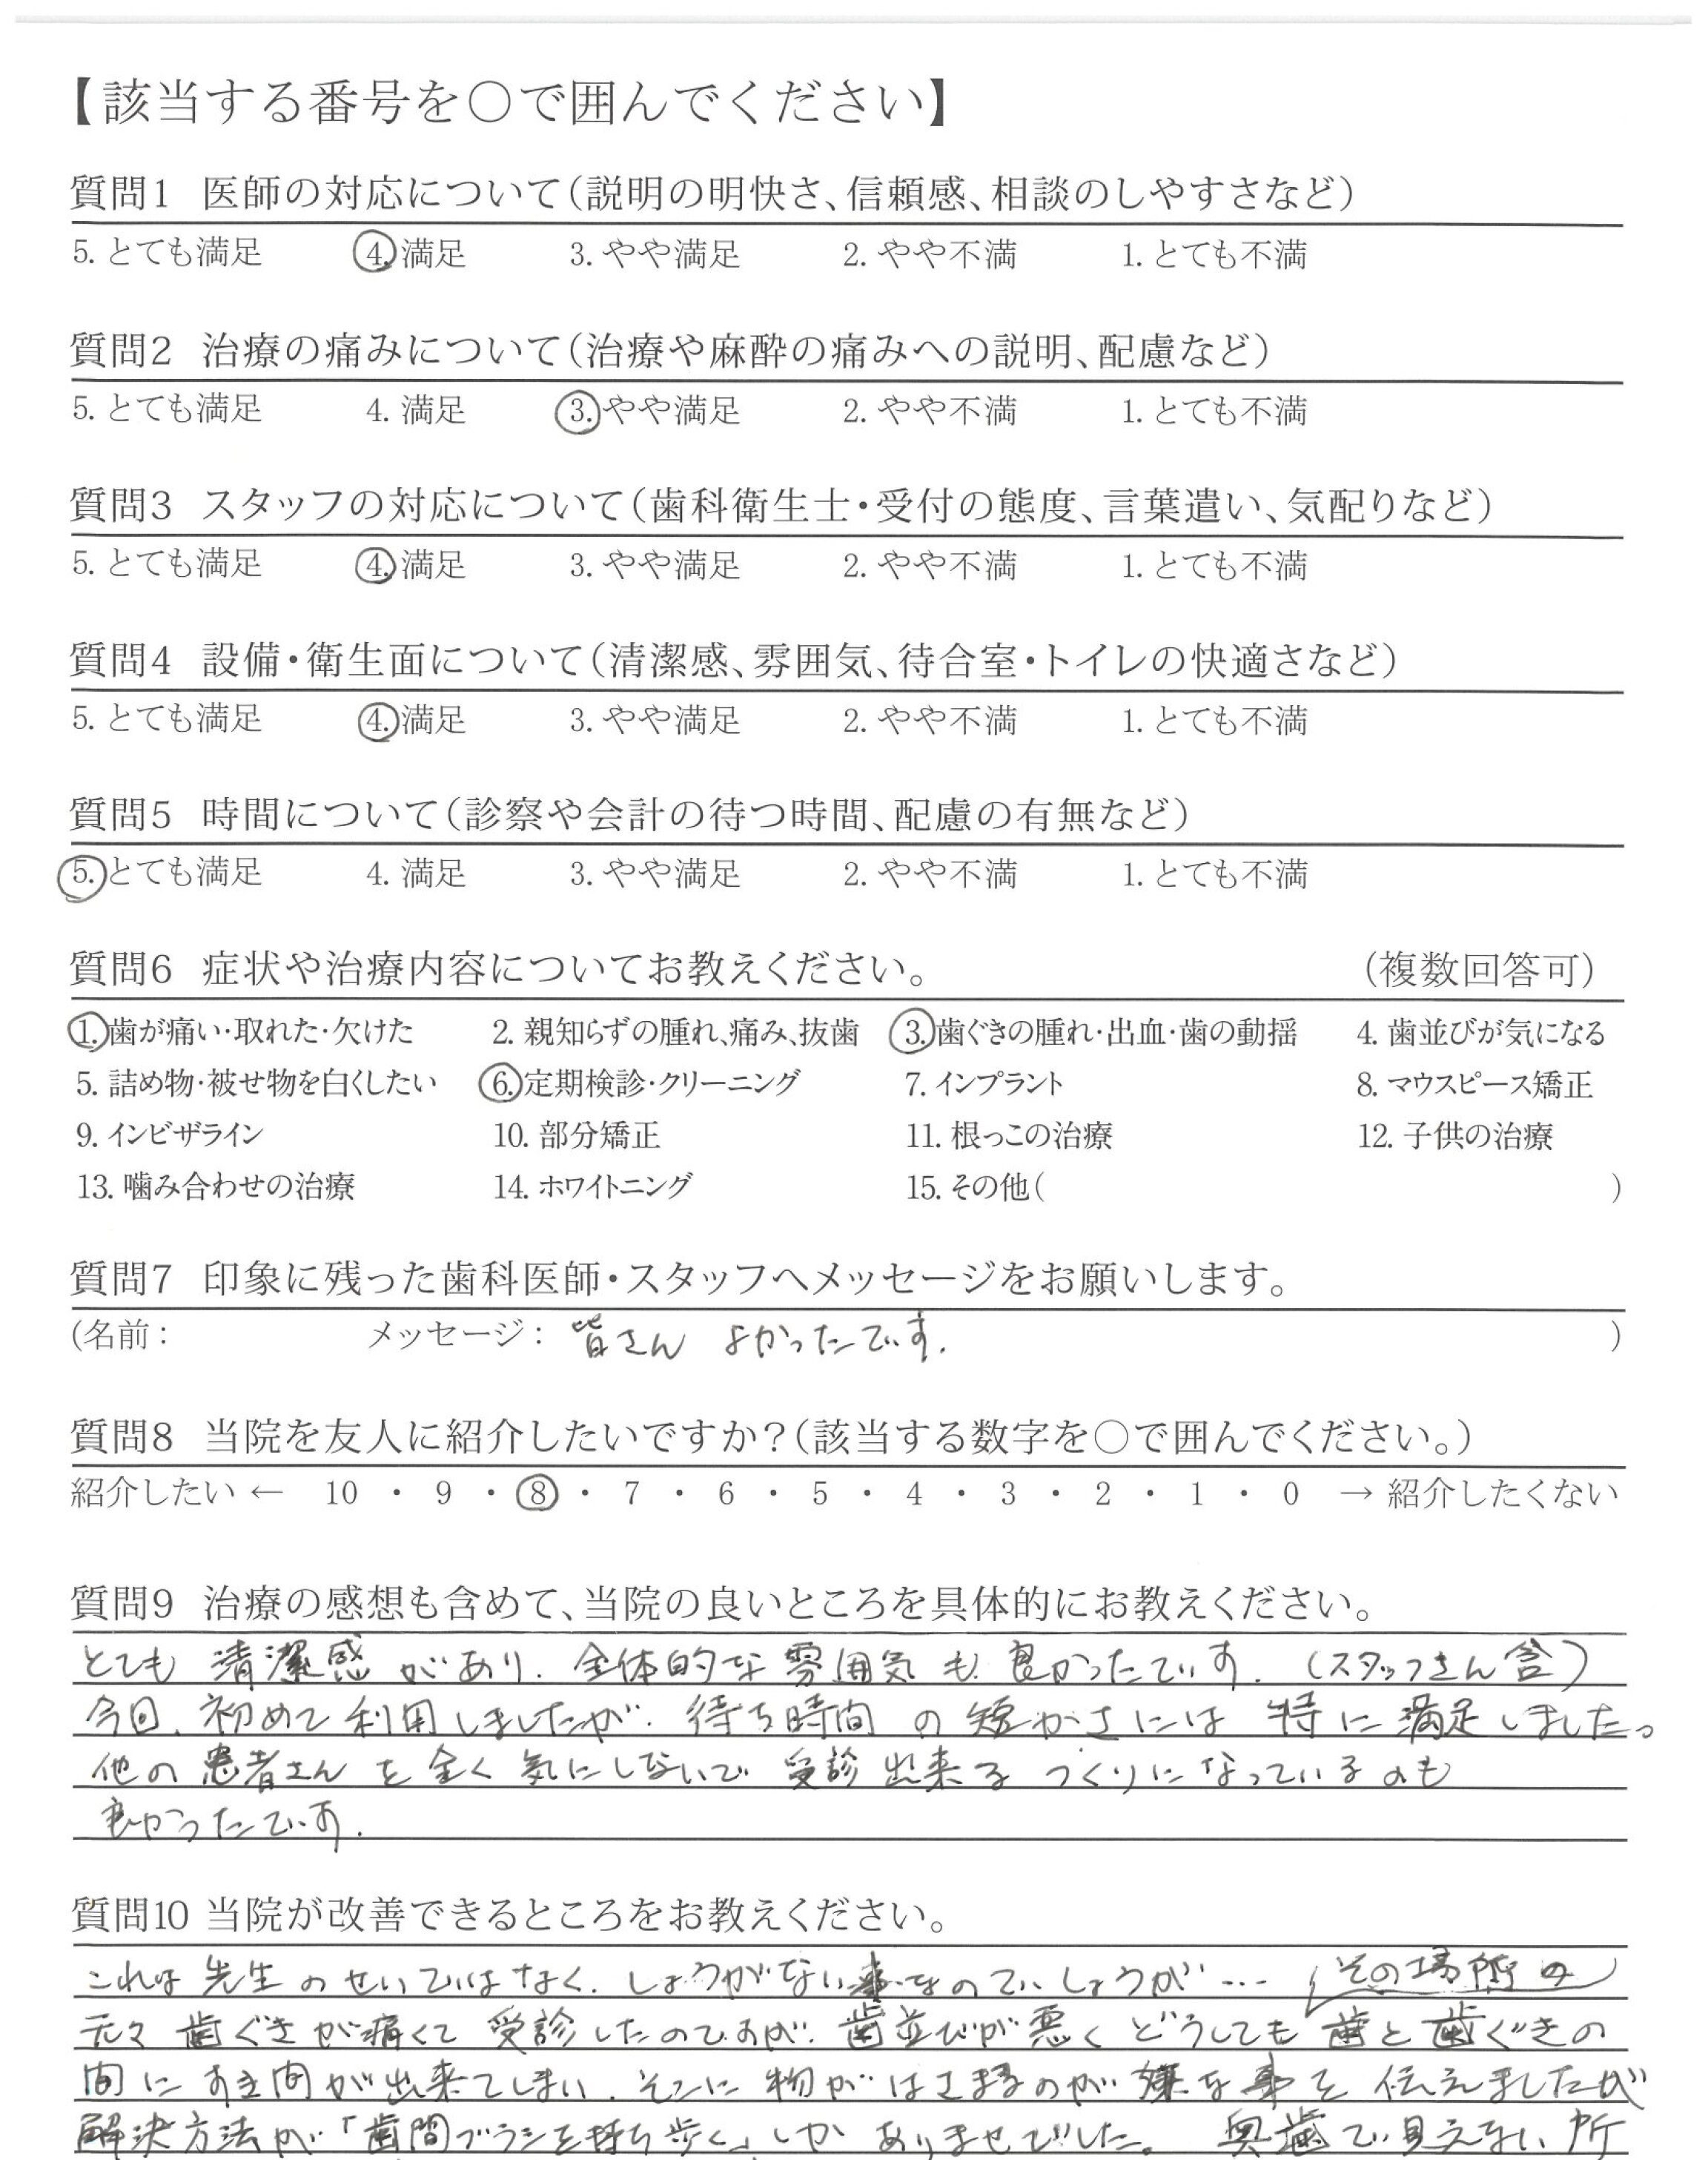 【該当する番号を〇で囲んでください】
質問1 医師の対応について(説明の明快さ、信頼感、相談のしやすさなど)
5. とても満足 4. 満足 3. やや満足 2. やや不満 1. とても不満
質問2 治療の痛みについて(治療や麻酔の痛みへの説明、配慮など)
5. とても満足 4. 満足 3. やや満足 2. やや不満 1. とても不満
質問3 スタッフの対応について(歯科衛生士・受付の態度、言葉遣い、気配りなど)
5. とても満足 4. 満足 3. やや満足 2. やや不満 1. とても不満
質問4 設備・衛生面について(清潔感、雰囲気、待合室・トイレの快適さなど)
5. とても満足 4. 満足 3. やや満足 2. やや不満 1. とても不満
質問5 時間について(診察や会計の待つ時間、配慮の有無など)
5. とても満足 4. 満足 3. やや満足 2. やや不満 1. とても不満
質問6 症状や治療内容についてお教えください。 (複数回答可)
1. 歯が痛い・取れた・欠けた 2. 親知らずの腫れ、痛み、抜歯 3. 歯ぐきの腫れ・出血・歯の動揺 4. 歯並びが気になる
5. 詰め物・被せ物を白くしたい 6. 定期検診・クリーニング 7. インプラント 8. マウスピース矯正
9. インビザライン 10. 部分矯正 11. 根っこの治療 12. 子供の治療
13. 噛み合わせの治療 14. ホワイトニング 15. その他( )
質問7 印象に残った歯科医師・スタッフへメッセージをお願いします。
(名前: メッセージ: 皆さん よかったです. )
質問8 当院を友人に紹介したいですか?(該当する数字を〇で囲んでください。)
紹介したい ← 10 ・ 9 ・ 8 ・ 7 ・ 6 ・ 5 ・ 4 ・ 3 ・ 2 ・ 1 ・ 0 → 紹介したくない
質問9 治療の感想も含めて、当院の良いところを具体的にお教えください。
とても 清潔感 があり. 全体的な 雰囲気 も 良かったです. (スタッフさん含)
今回. 初めて利用しましたが. 待ち時間 の 短かさには 特に 満足しました。
他の 患者さん を 全く 気にしないで 受診 出来る つくりになっているのも
良かったです.
質問10 当院が改善できるところをお教えください。
これは 先生 のせいではなく. しょうがない事なのでしょうが… その場所の
元々 歯ぐきが痛くて 受診したのですが. 歯並びが悪く どうしても 歯と歯ぐきの
間に すき間が出来てしまい. そこに 物が はさまるのが 嫌な事を 伝えましたが
解決方法が「歯間ブラシを持ち歩く」しか ありませんでした。 奥歯で見えない 所